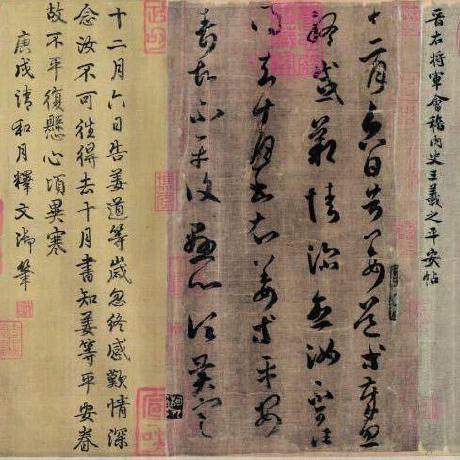 晉右將軍會稽內史王羲之平安帖
十二月六日告姜道等歲忽
終感歎情深念汝不可往
得去十月書知姜等平安
眷故不平復懸心頃異寒
十二月六日告姜道等歲忽終感歎情深
念汝不可往得去十月書知姜等平安眷
故不平復懸心頃異寒
庚戌清和月釋文御筆